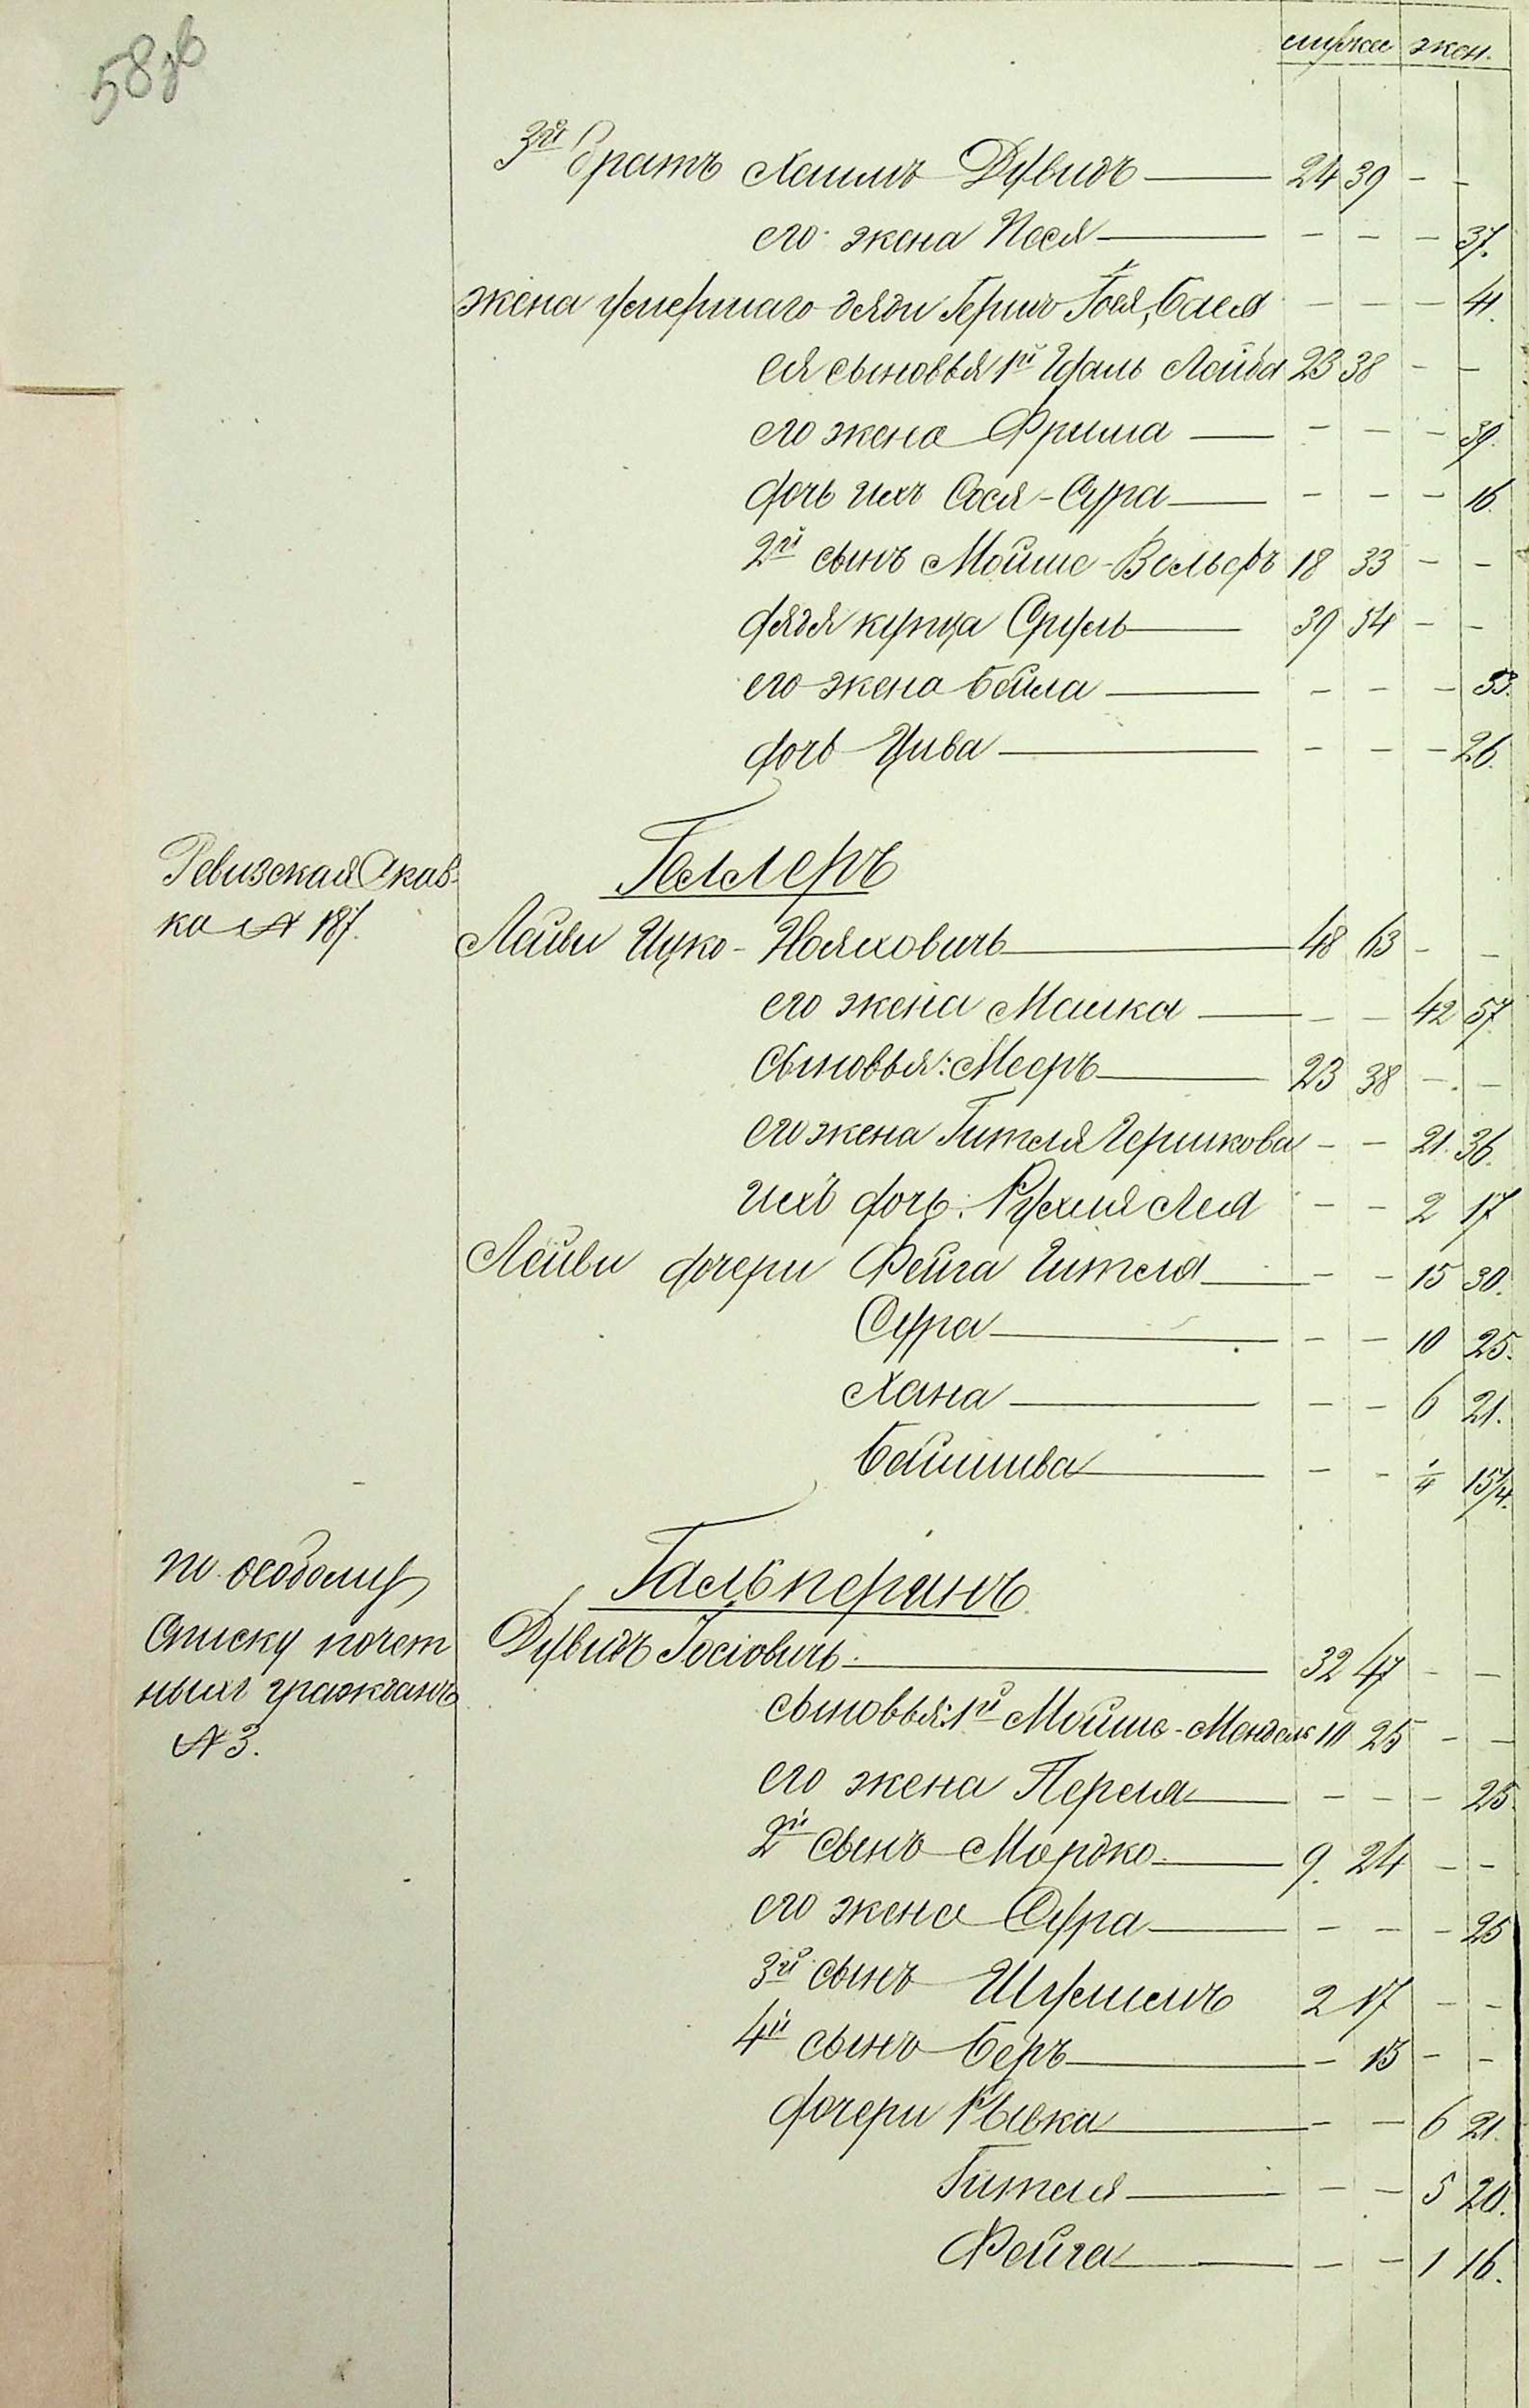 58об
мужс жен.
3й братъ Хаимъ Дувидъ — 24 39 - -
его жена Песя — - - - 37.
жена умершаго дяди Гершъ Гося, Бася - - - 41.
ея сыновья 1й Цаль Лейба 23 38 - -
его жена Фрима — - - - 39.
дочь ихъ Сося-Сура — - - - 16.
2й сынъ Мойше-Вольфъ 18 33 - -
дядя купца Сруль — 39 54 - -
его жена Бейла — - - - 53.
дочь Цива — - - - 26.
Геллеръ
Ревизская Сказ-
ка № 187.
Лейви Ицко-Нояховичъ — 48 63 - -
его жена Малка — - - 42 57.
сыновья: Мееръ — 23 38 - -
его жена Гителя Гершкова - - 21. 36.
ихъ дочь: Рухля Лея - - 2 17
Лейви дочери Фейга Гителя — - - 15 30.
Сура — - - 10 25.
Хана — - - 6 21.
Бейшива — - - 1/4 15 1/4.
Гальперинъ
по особому
Списку почет
ныхъ гражданъ
№ 3.
Дувидъ Іосіовичъ — 32 47 - -
сыновья: 1й Мойше-Мендель 10 25 - -
его жена Переля — - - - 25.
2й сынъ Мордко — 9. 24 - -
его жена Сура — - - - 25
3й сынъ Шулимъ 2 17 - -
4й сынъ Беръ — - 13 - -
дочери Рывка — - - 6 21.
Гителя — - - 5 20.
Фейга — - - 1 16.